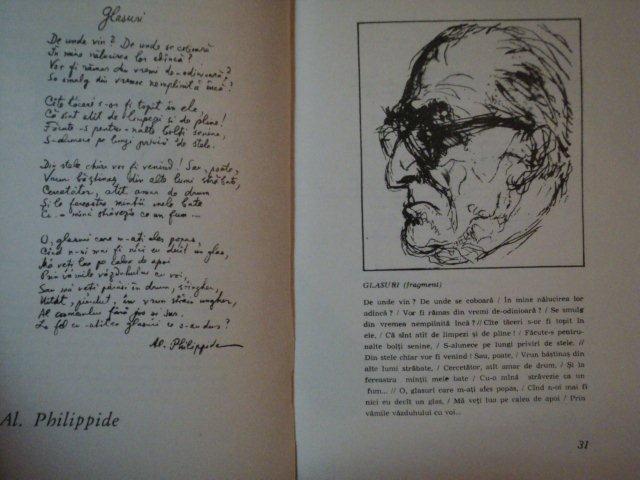 Glasuri
De unde vin? De unde se coboară
În mine nălucirea lor adîncă?
Vor fi rămas din vremi de-odinioară?
Se smulg din vremea nemplinită încă?
Cîte tăceri s-or fi topit în ele,
Că sînt atît de limpezi și de pline!
Făcute-s pentru-nalte bolți senine,
S-alunece pe lungi priviri de stele.
Din stele chiar vor fi venind! Sau, poate,
Vrun băștinaș din alte lumi străbate,
Cercetător, atît amar de drum
Și la fereastra minții mele bate
Cu-o mînă străvezie ca un fum...
O, glasuri care m-ați ales popas,
Cînd n-oi mai fi nici eu decît un glas,
Mă veți lua pe calea de apoi
Prin vămile văzduhului cu voi,
Sau mă veți părăsi în drum, stingher,
Uitat, pierdut, în vrun străin ungher,
Al neamului fără jos și sus.
La fel cu-atîtea glasuri ce s-au dus?
Al. Philippide
Al. Philippide
GLASURI (fragment)
De unde vin? De unde se coboară / În mine nălucirea lor
adîncă? / Vor fi rămas din vremi de-odinioară? / Se smulg
din vremea nemplinită încă? // Cîte tăceri s-or fi topit în
ele, / Că sînt atît de limpezi și de pline! / Făcute-s pentru-
nalte bolți senine, / S-alunece pe lungi priviri de stele. //
Din stele chiar vor fi venind! Sau, poate, / Vrun băștinaș din
alte lumi străbate, / Cercetător, atît amar de drum, / Și la
fereastra minții mele bate / Cu-o mînă străvezie ca un
fum... // O, glasuri care m-ați ales popas, / Cînd n-oi mai fi
nici eu decît un glas, / Mă veți lua pe calea de apoi / Prin
vămile văzduhului cu voi...
31